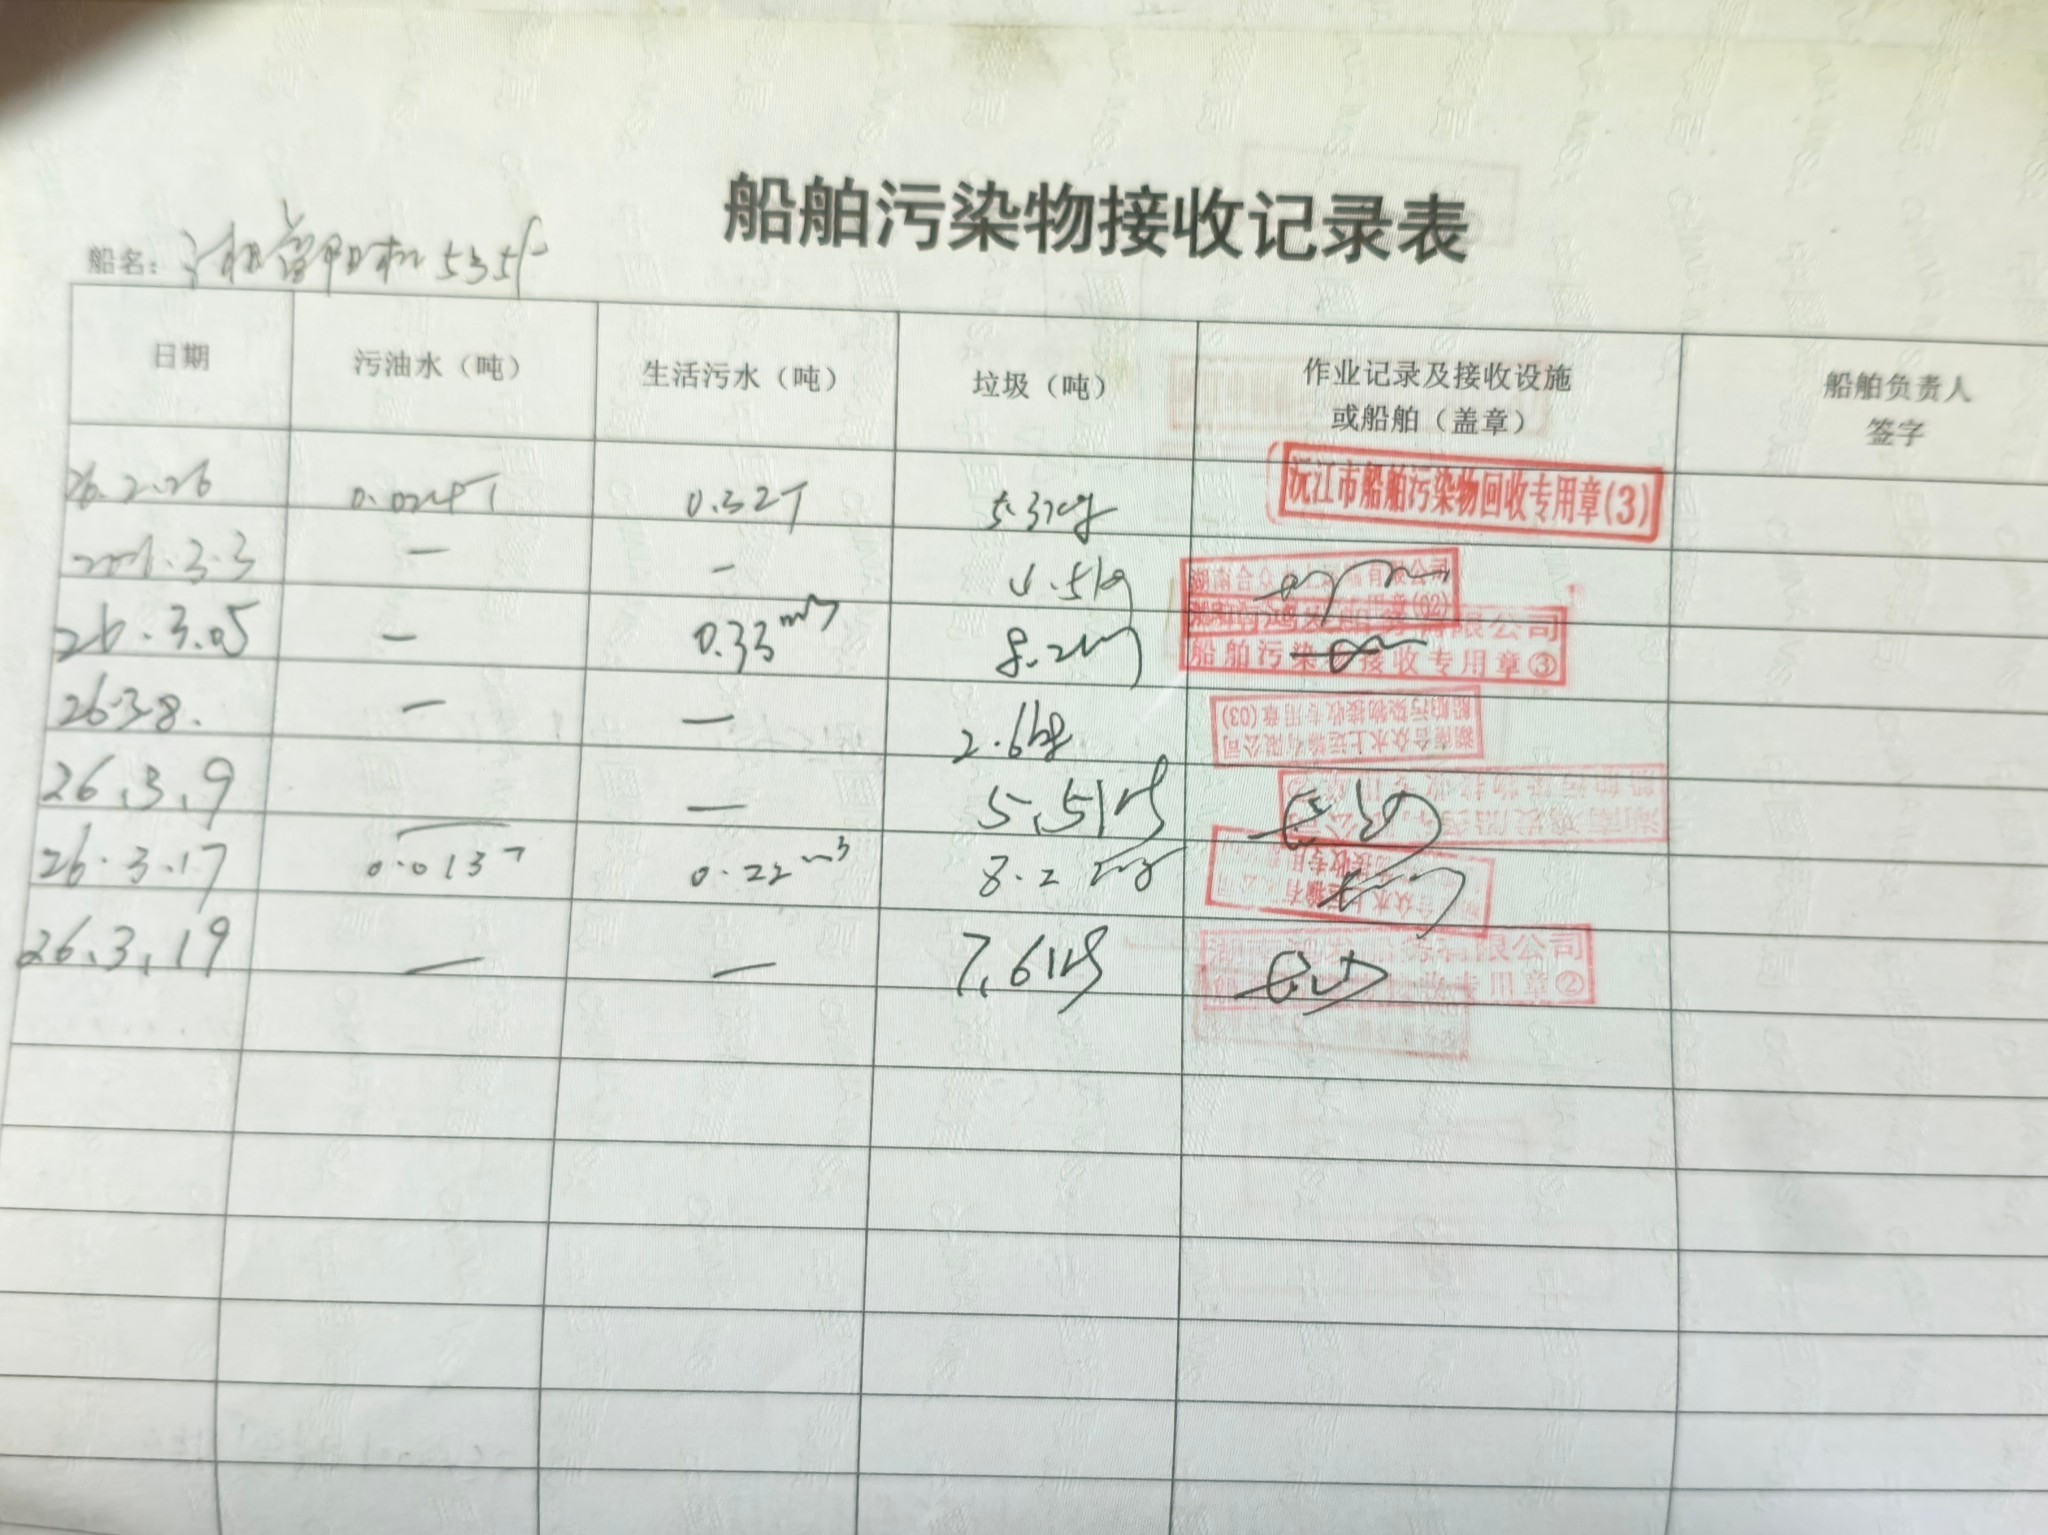 船舶污染物接收记录表
船名: 5355
日期 污油水（吨） 生活污水（吨） 垃圾（吨） 作业记录及接收设施或船舶（盖章） 船舶负责人签字
26.2.26 0.024T 0.32T 5.3kg 沅江市船舶污染物回收专用章(3)
3.3 — — 4.5kg 湖南合众水上运输有限公司
26.3.05 — 0.33m3 8.2kg 船舶污染物接收专用章③
26.3.8. — — 2.6kg 湖南合众水上运输有限公司 船舶污染物接收专用章(03)
26.3.9 — — 5.5kg
26.3.17 0.013T 0.22m3 8.2kg
26.3.19 — — 7.6kg 有限公司 专用章②